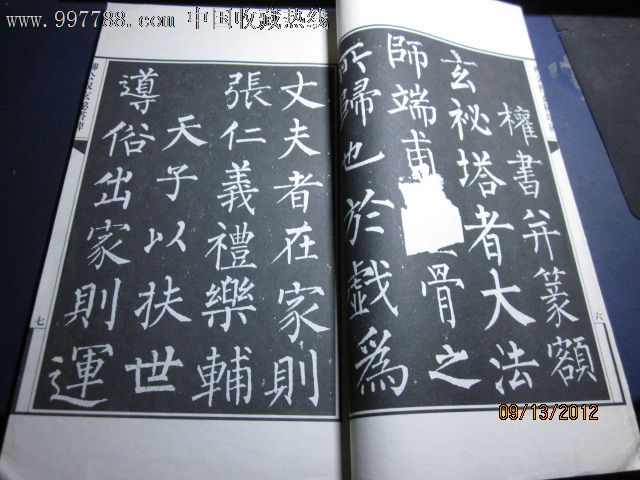 www.997788.com 中国收藏热线
權書并篆額
玄祕塔者大法
師端甫骨之
所歸也於戲為
六
丈夫者在家則
張仁義禮樂輔
天子以扶世
導俗出家則運
七
09/13/2012